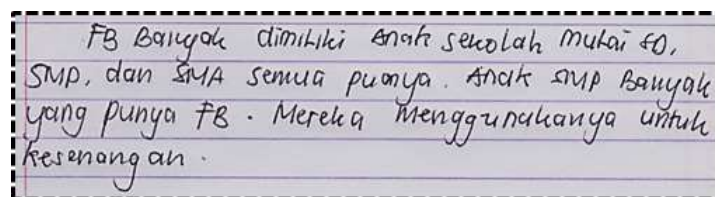 FB Banyak dimiliki Anak sekolah mulai SD,
SMP, dan SMA semua puonya. Anak SMP Banyak
yang Punya FB. Mereka Menggunakanya untuk
kesenangan.